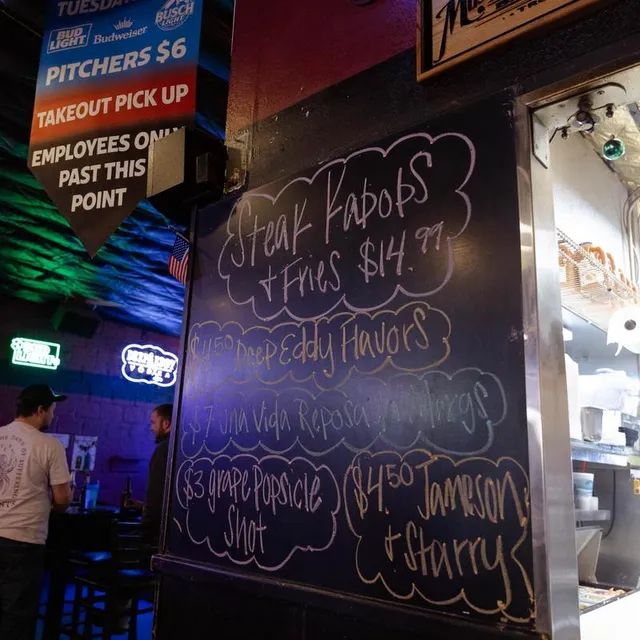 TUESDAY
BUD LIGHT Budweiser BUSCH LIGHT
PITCHERS $6
TAKEOUT PICK UP
EMPLOYEES ONLY
PAST THIS
POINT
Steak Kabobs
+ Fries $14.99
$4.50 Deep Eddy Flavors
$7 una Vida Reposado
$3 grape Popsicle
Shot
$4.50 Jameson
+ Starry